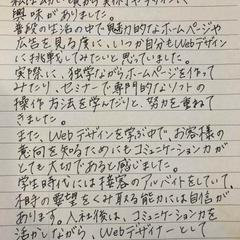 私は幼い頃から美術やデザインに
興味がありました。
普段の生活の中で魅力的なホームページや
広告を見る度に、いつか自分もWebデザイン
に挑戦してみたいと思っていました。
実際に、独学ながらホームページを作って
みたり、セミナーで専門的なソフトの
操作方法を学んだりと、努力を重ねて
きました。
また、Webデザインを学ぶ中で、お客様の
意向を知るためにもコミュニケーション力が
とても大切であると感じました。
学生時代には接客のアルバイトをしていて、
相手の要望をくみ取る能力には自信が
あります。入社後は、コミュニケーション力を
活かしながら、Webデザイナーとして